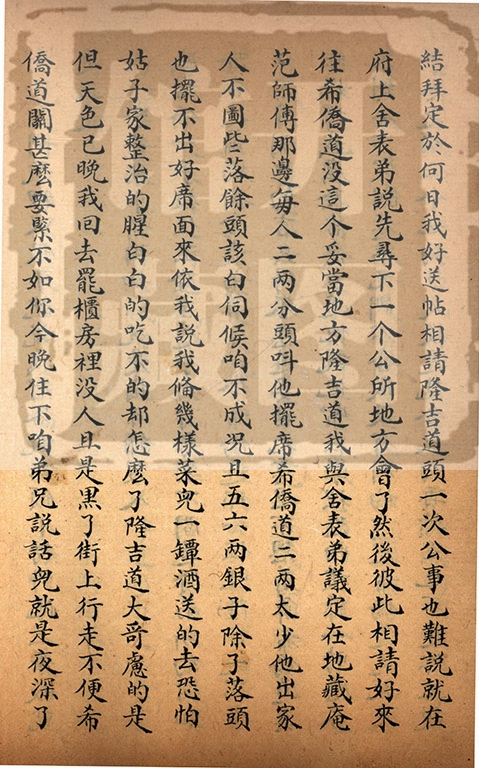 結拜定於何日我好送帖相請隆吉道頭一次公事也難說就在
府上舍表弟說先尋下一个公所地方會了然後彼此相請好來
往希僑道沒這个妥當地方隆吉道我與舍表弟議定在地藏庵
范師傅那邊每人二兩分頭呌他擺席希僑道二兩太少他出家
人不圖些落餘頭該白伺候咱不成况且五六兩銀子除了落頭
也擺不出好席面來依我說我俻幾樣菜兒一罈酒送的去恐怕
姑子家整治的腥白白的吃不的却怎麽了隆吉道大哥慮的是
但天色已晚我回去罷櫃房裡没人且是黒了街上行走不便希
僑道關甚麽要緊不如你今晚住下咱弟兄説話兒就是夜深了